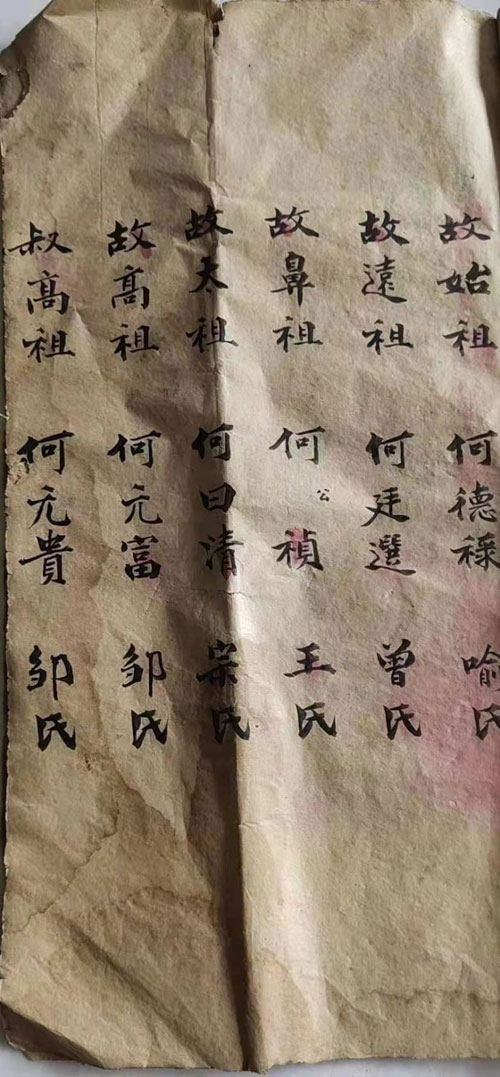 故始祖 何德禄 喻氏
故遠祖 何廷選 曾氏
故鼻祖 何公禎 王氏
故太祖 何曰清 宗氏
故髙祖 何元富 邹氏
叔髙祖 何元貴 邹氏